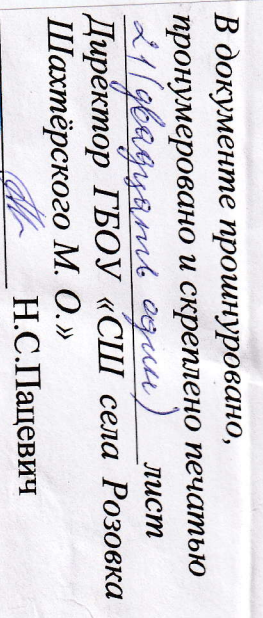 В документе прошнуровано,
пронумеровано и скреплено печатью
21 (двадцать один) лист
Директор ГБОУ «СШ села Розовка
Шахтёрского М. О.»
Н.С.Пацевич